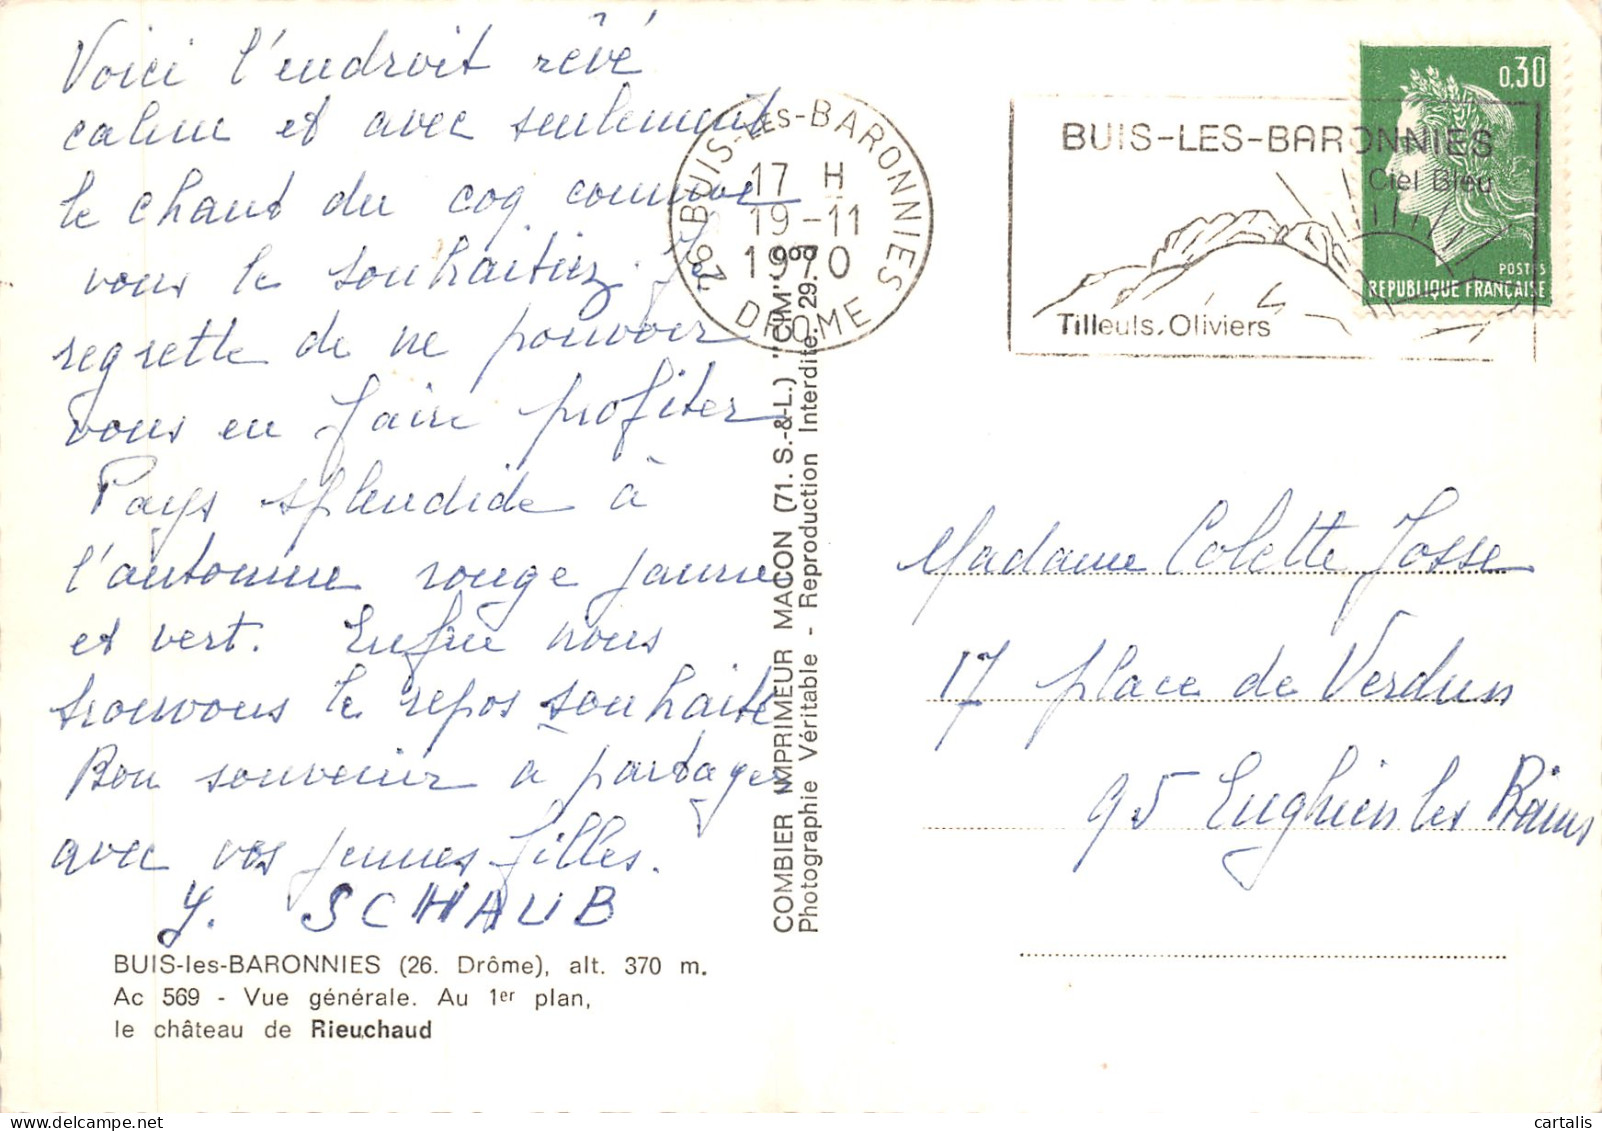 Voici l'endroit rêvé
calme et avec seulement
le chant du coq comme
vous le souhaitiez. Je
regrette de ne pouvoir
vous en faire profiter
Pays splendide à
l'automne rouge jaune
et vert. Enfin nous
trouvons le repos souhaité
Bon souvenir à partager
avec vos jeunes filles.
Y. SCHAUB
BUIS-les-BARONNIES (26. Drôme), alt. 370 m.
Ac 569 - Vue générale. Au 1er plan,
le château de Rieuchaud
COMBIER IMPRIMEUR MACON (71. S.-&-L.) "CIM"
Photographie Véritable - Reproduction Interdite
26 BUIS-LES-BARONNIES
17 H
19-11
1970
DROME
BUIS-LES-BARONNIES
Ciel Bleu
Tilleuls, Oliviers
0,30
POSTES
REPUBLIQUE FRANÇAISE
Madame Colette Josse
17 place de Verdun
95 Enghien les Bains
delcampe.net
cartalis